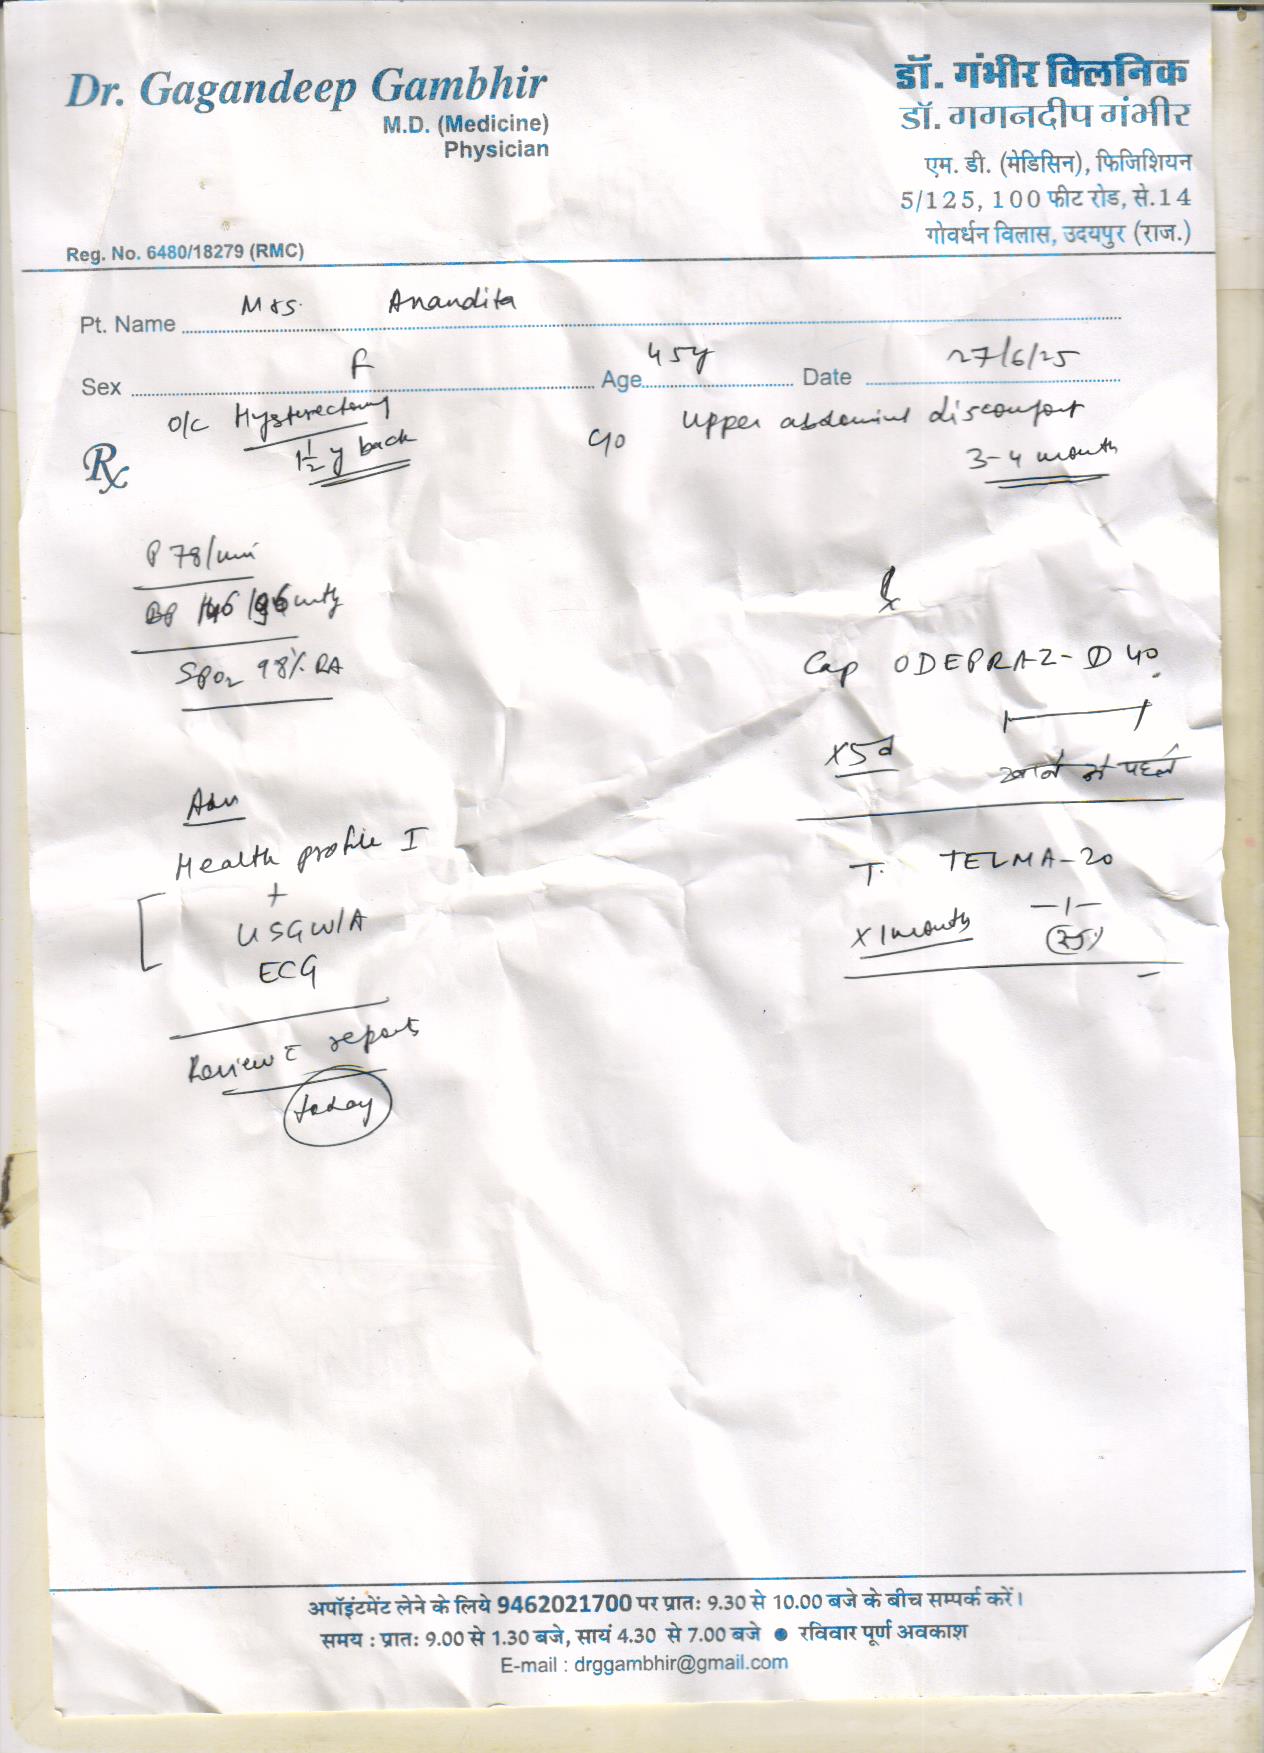 Dr. Gagandeep Gambhir
M.D. (Medicine)
Physician
Reg. No. 6480/18279 (RMC)
डॉ. गंभीर क्लिनिक
डॉ. गगनदीप गंभीर
एम. डी. (मेडिसिन), फिजिशियन
5/125, 100 फीट रोड, से.14
गोवर्धन विलास, उदयपुर (राज.)
Pt. Name Mrs. Anandita
Sex F Age 45y Date 27/6/25
Rx
O/c Hysterectomy
1½ y back
C/o Upper abdominal discomfort
3-4 month
P 78/min
BP 146/96 mmHg
SPO2 98% RA
Adv
Health profile I
+
USG W/A
ECG
Review c̄ reports
today
Rx
Cap ODEPRAZ-D 40
x5d खाने से पहले
T. TELMA-20
x 1 month -1-
अपॉइंटमेंट लेने के लिये 9462021700 पर प्रातः 9.30 से 10.00 बजे के बीच सम्पर्क करें।
समय : प्रातः 9.00 से 1.30 बजे, सायं 4.30 से 7.00 बजे ● रविवार पूर्ण अवकाश
E-mail : drggambhir@gmail.com